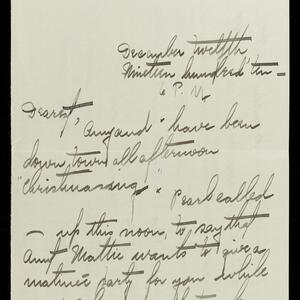 December twelfth
Nineteen hundred ten —
6 P.M.
Dearest,
"Amy and I have been
down town all afternoon
"Christmasing". Pearl called
— up this noon, to say that
Aunt Mattie wants to give a
matineé party for you while